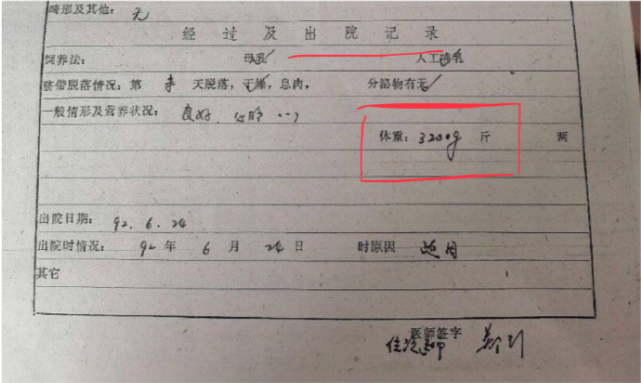 畸形及其他：无
经过及出院记录
饲养法： 母乳 人工哺乳
脐带脱落情况：第 天脱落，干燥，息肉， 分泌物有无
一般情形及营养状况：良好
体重：3200g 斤 两
出院日期：92.6.24
出院时情况：92年6月24日 时原因
其它
医师签字
住院医师